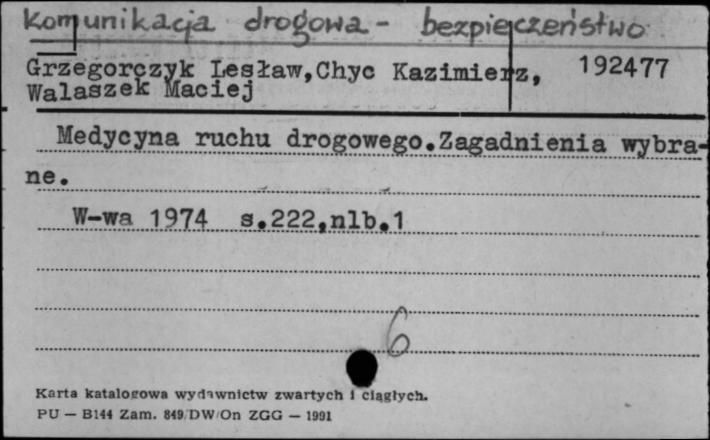 Komunikacja drogowa - bezpieczeństwo
Grzegorczyk Lesław,Chyc Kazimierz, 192477
Walaszek Maciej
Medycyna ruchu drogowego.Zagadnienia wybra-
ne.
W-wa 1974 s.222,nlb.1
6
Karta katalogowa wydawnictw zwartych i ciągłych.
PU — B144 Zam. 849/DW/On ZGG — 1991